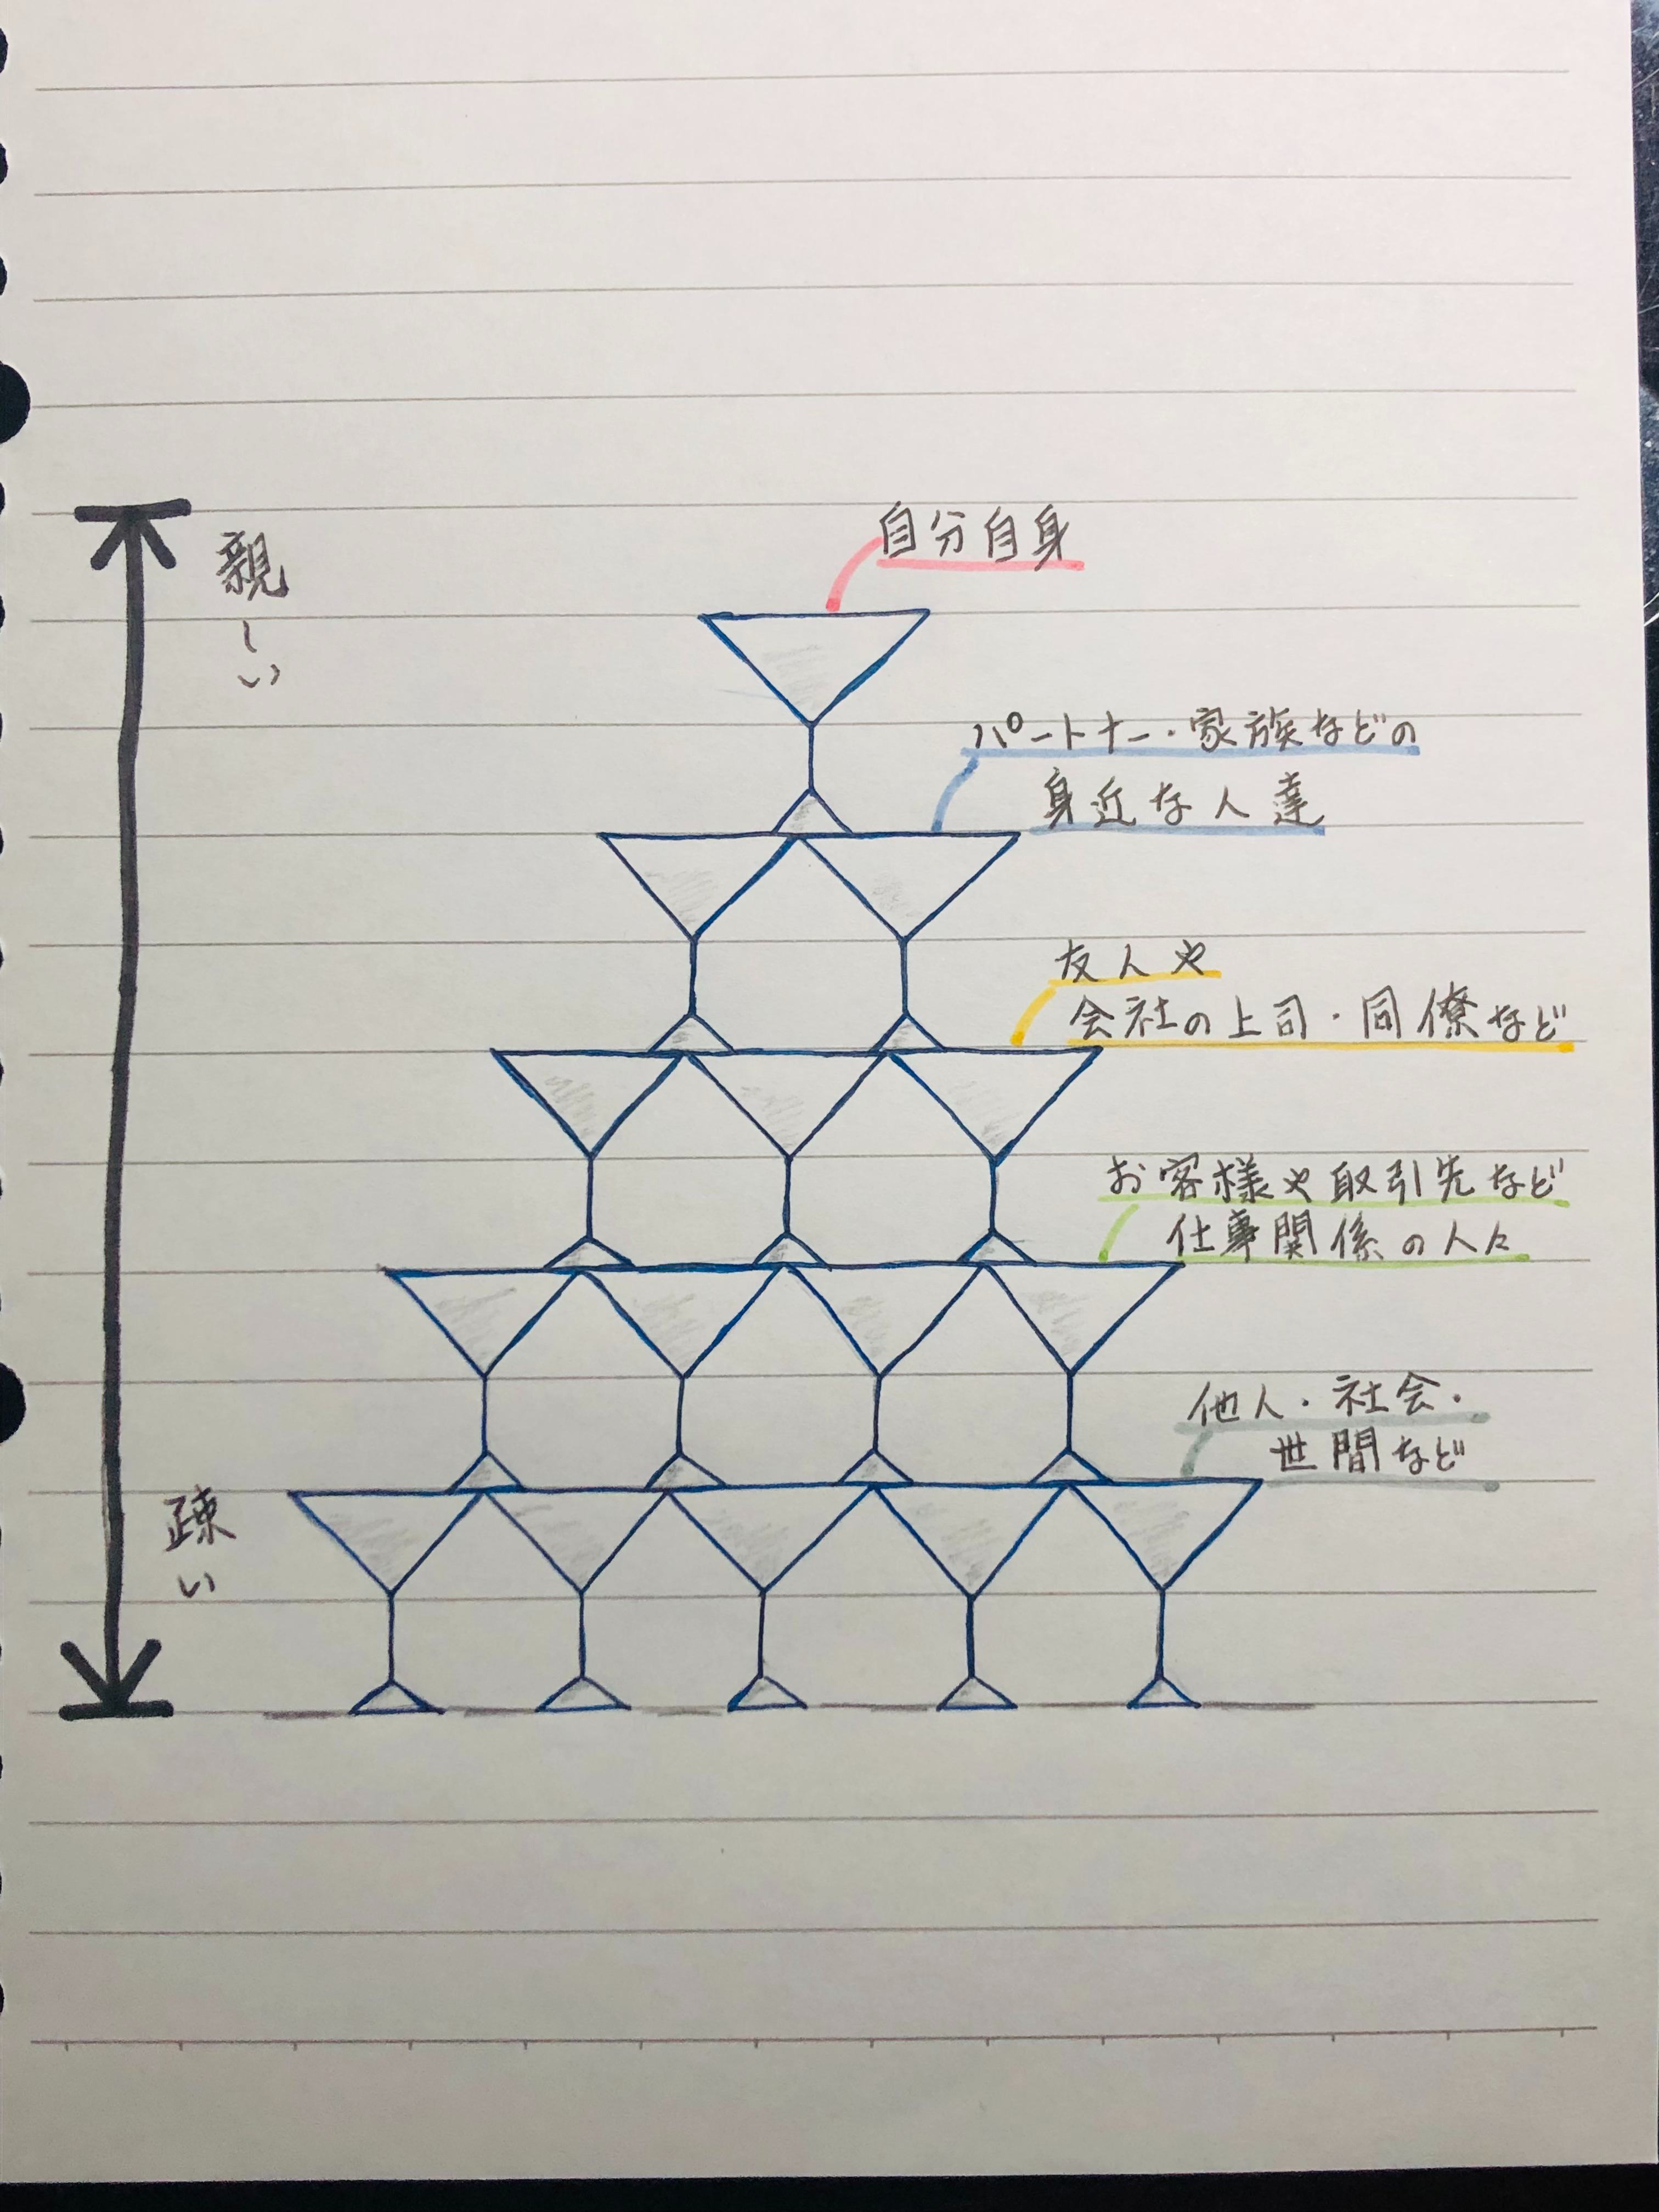 親しい
自分自身
パートナー・家族などの
身近な人達
友人や
会社の上司・同僚など
お客様や取引先など
仕事関係の人々
他人・社会・
世間など
疎い